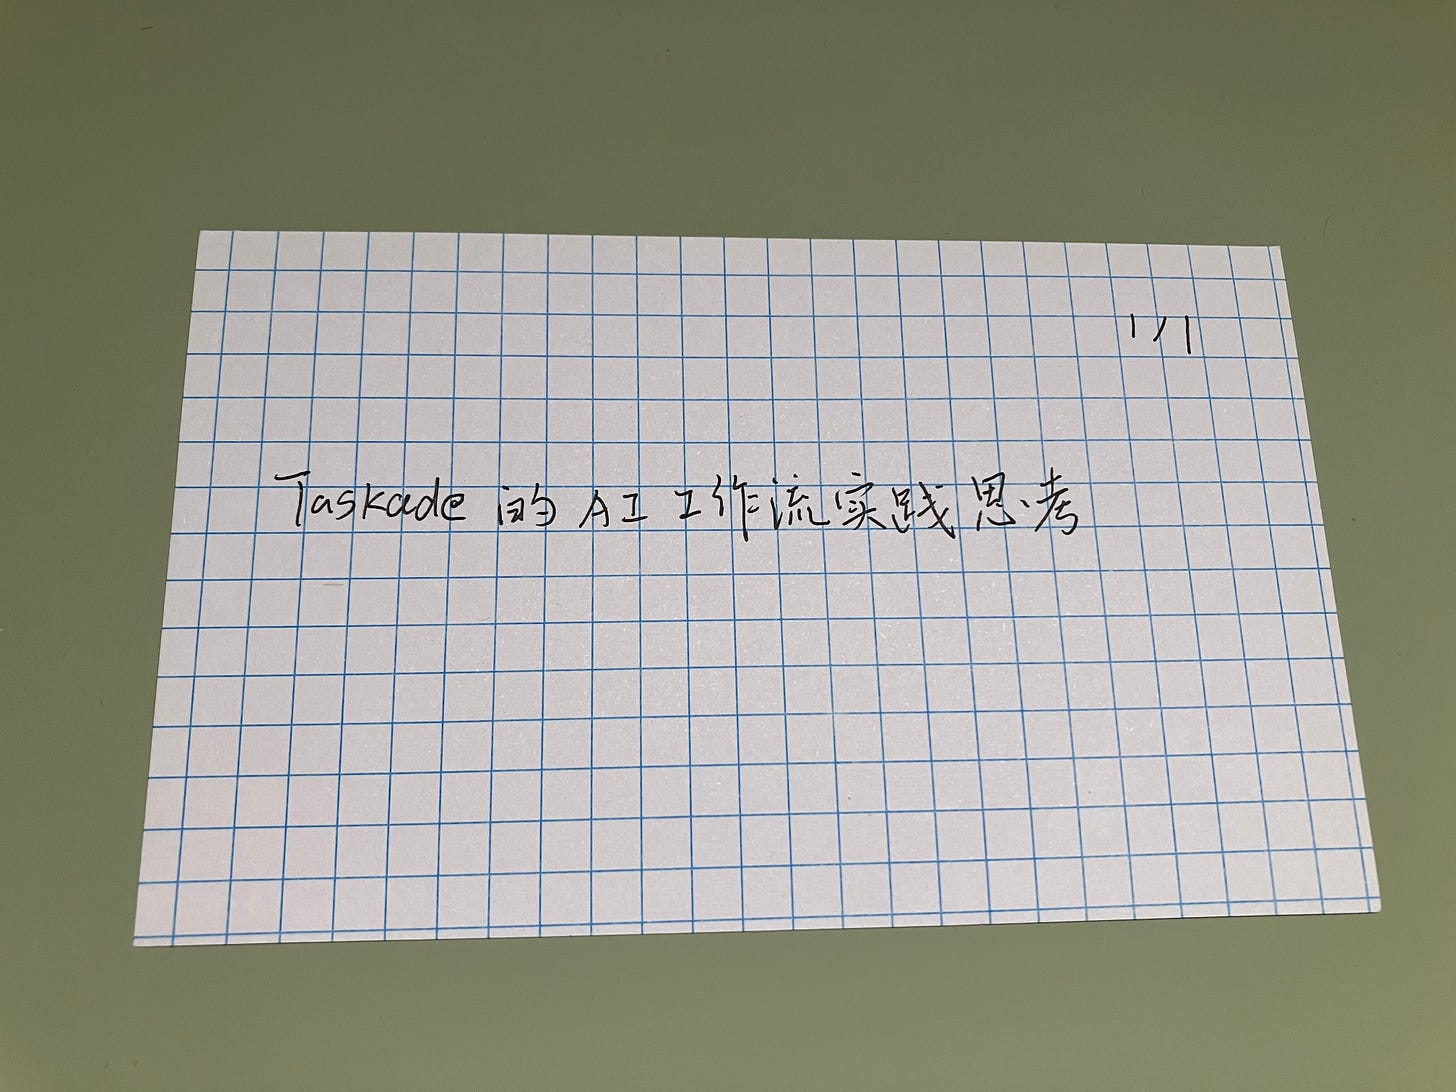 1/1
Taskade 的 AI 工作流实践思考